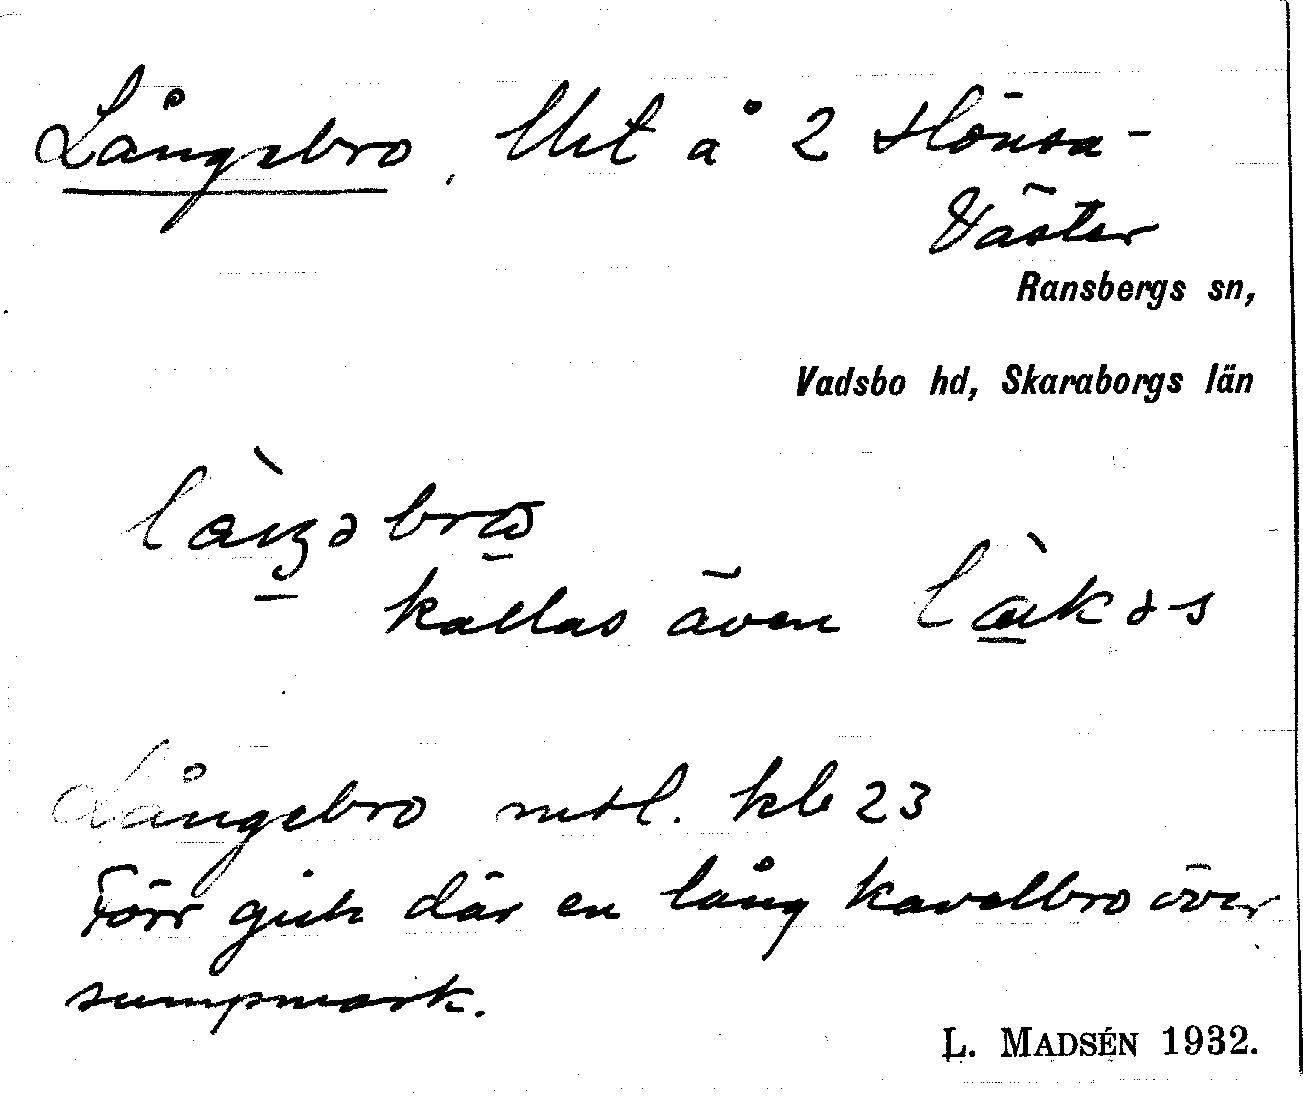 Långebro, Utet å 2 Hönsa-
Väster
Ransbergs sn,
Vadsbo hd, Skaraborgs län
kallas även
Långebro mtl. kb 23
Förr gick där en lång kavelbro över
sumpmark.
L. MADSÉN 1932.